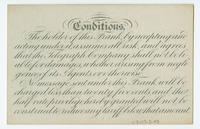 Conditions.
The holder of this Frank, by accepting and
acting under it assumes all risk, and agrees
that the Telegraph Company shall not be li-
able for damages, whether arising from negli-
gence of its Agents or otherwise.
No message sent under this Frank will be
charged less than twenty five cents, and the
half rate privilege hereby granted will not be
construed to reduce any tariff below that amount.